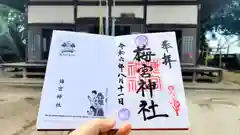 奉拝
梅宮神社
令和六年八月十一日
梅宮神社